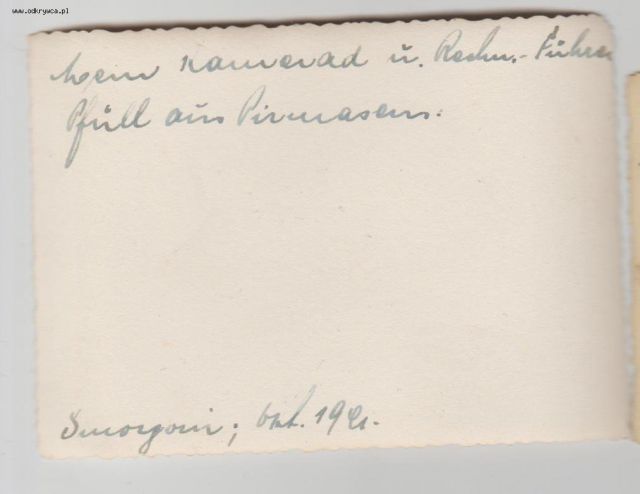 www.odkrywca.pl
Mein Kamerad u. Rechn.-Führer
Pfüll aus Pirmasens.
Smorgoni; Okt. 1941.